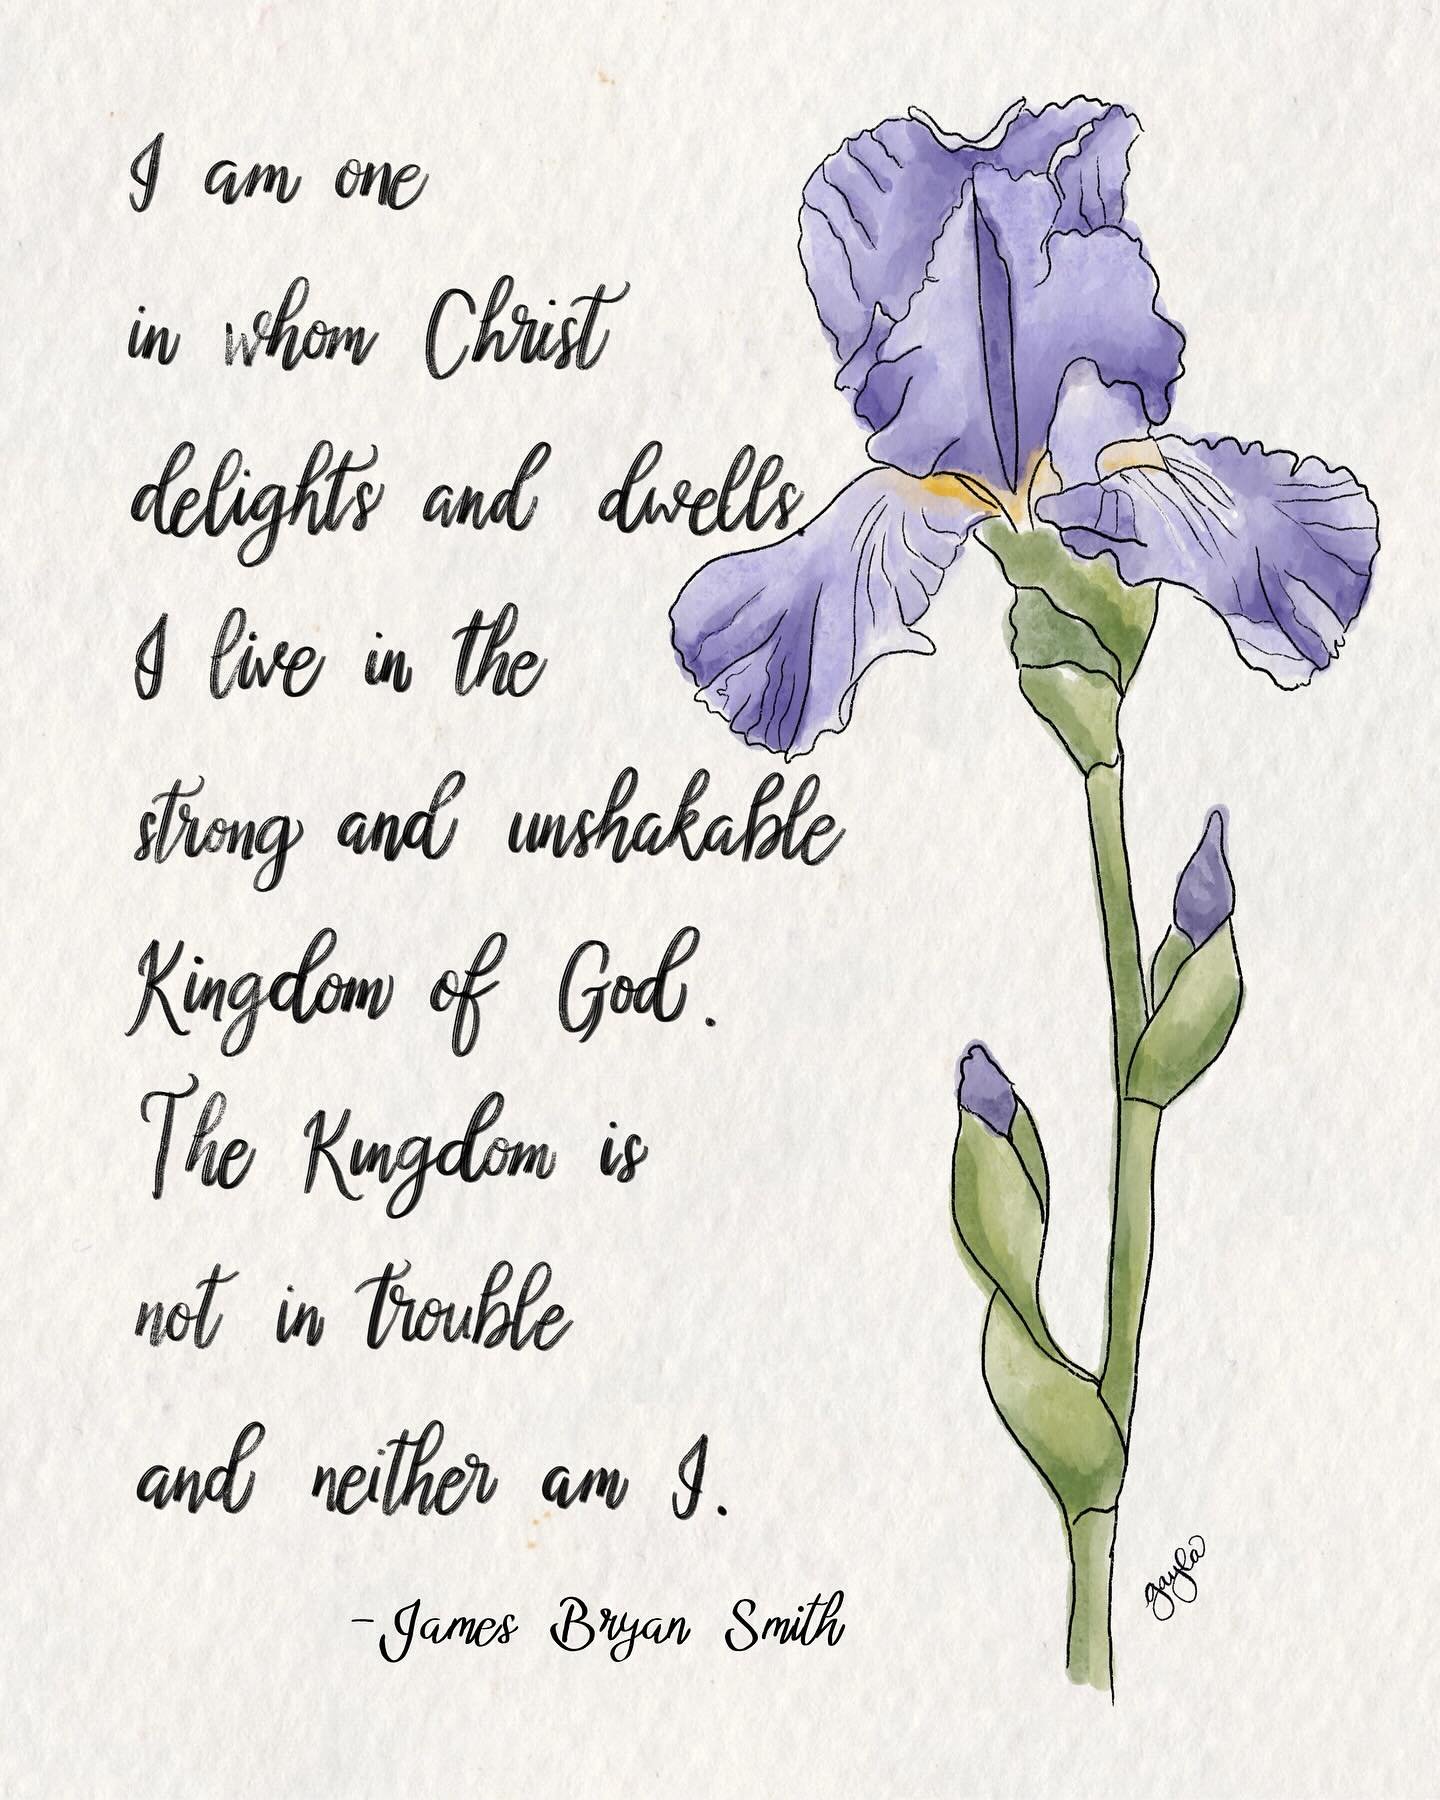 I am one
in whom Christ
delights and dwells.
I live in the
strong and unshakable
Kingdom of God.
The Kingdom is
not in trouble
and neither am I.
-James Bryan Smith
gayla